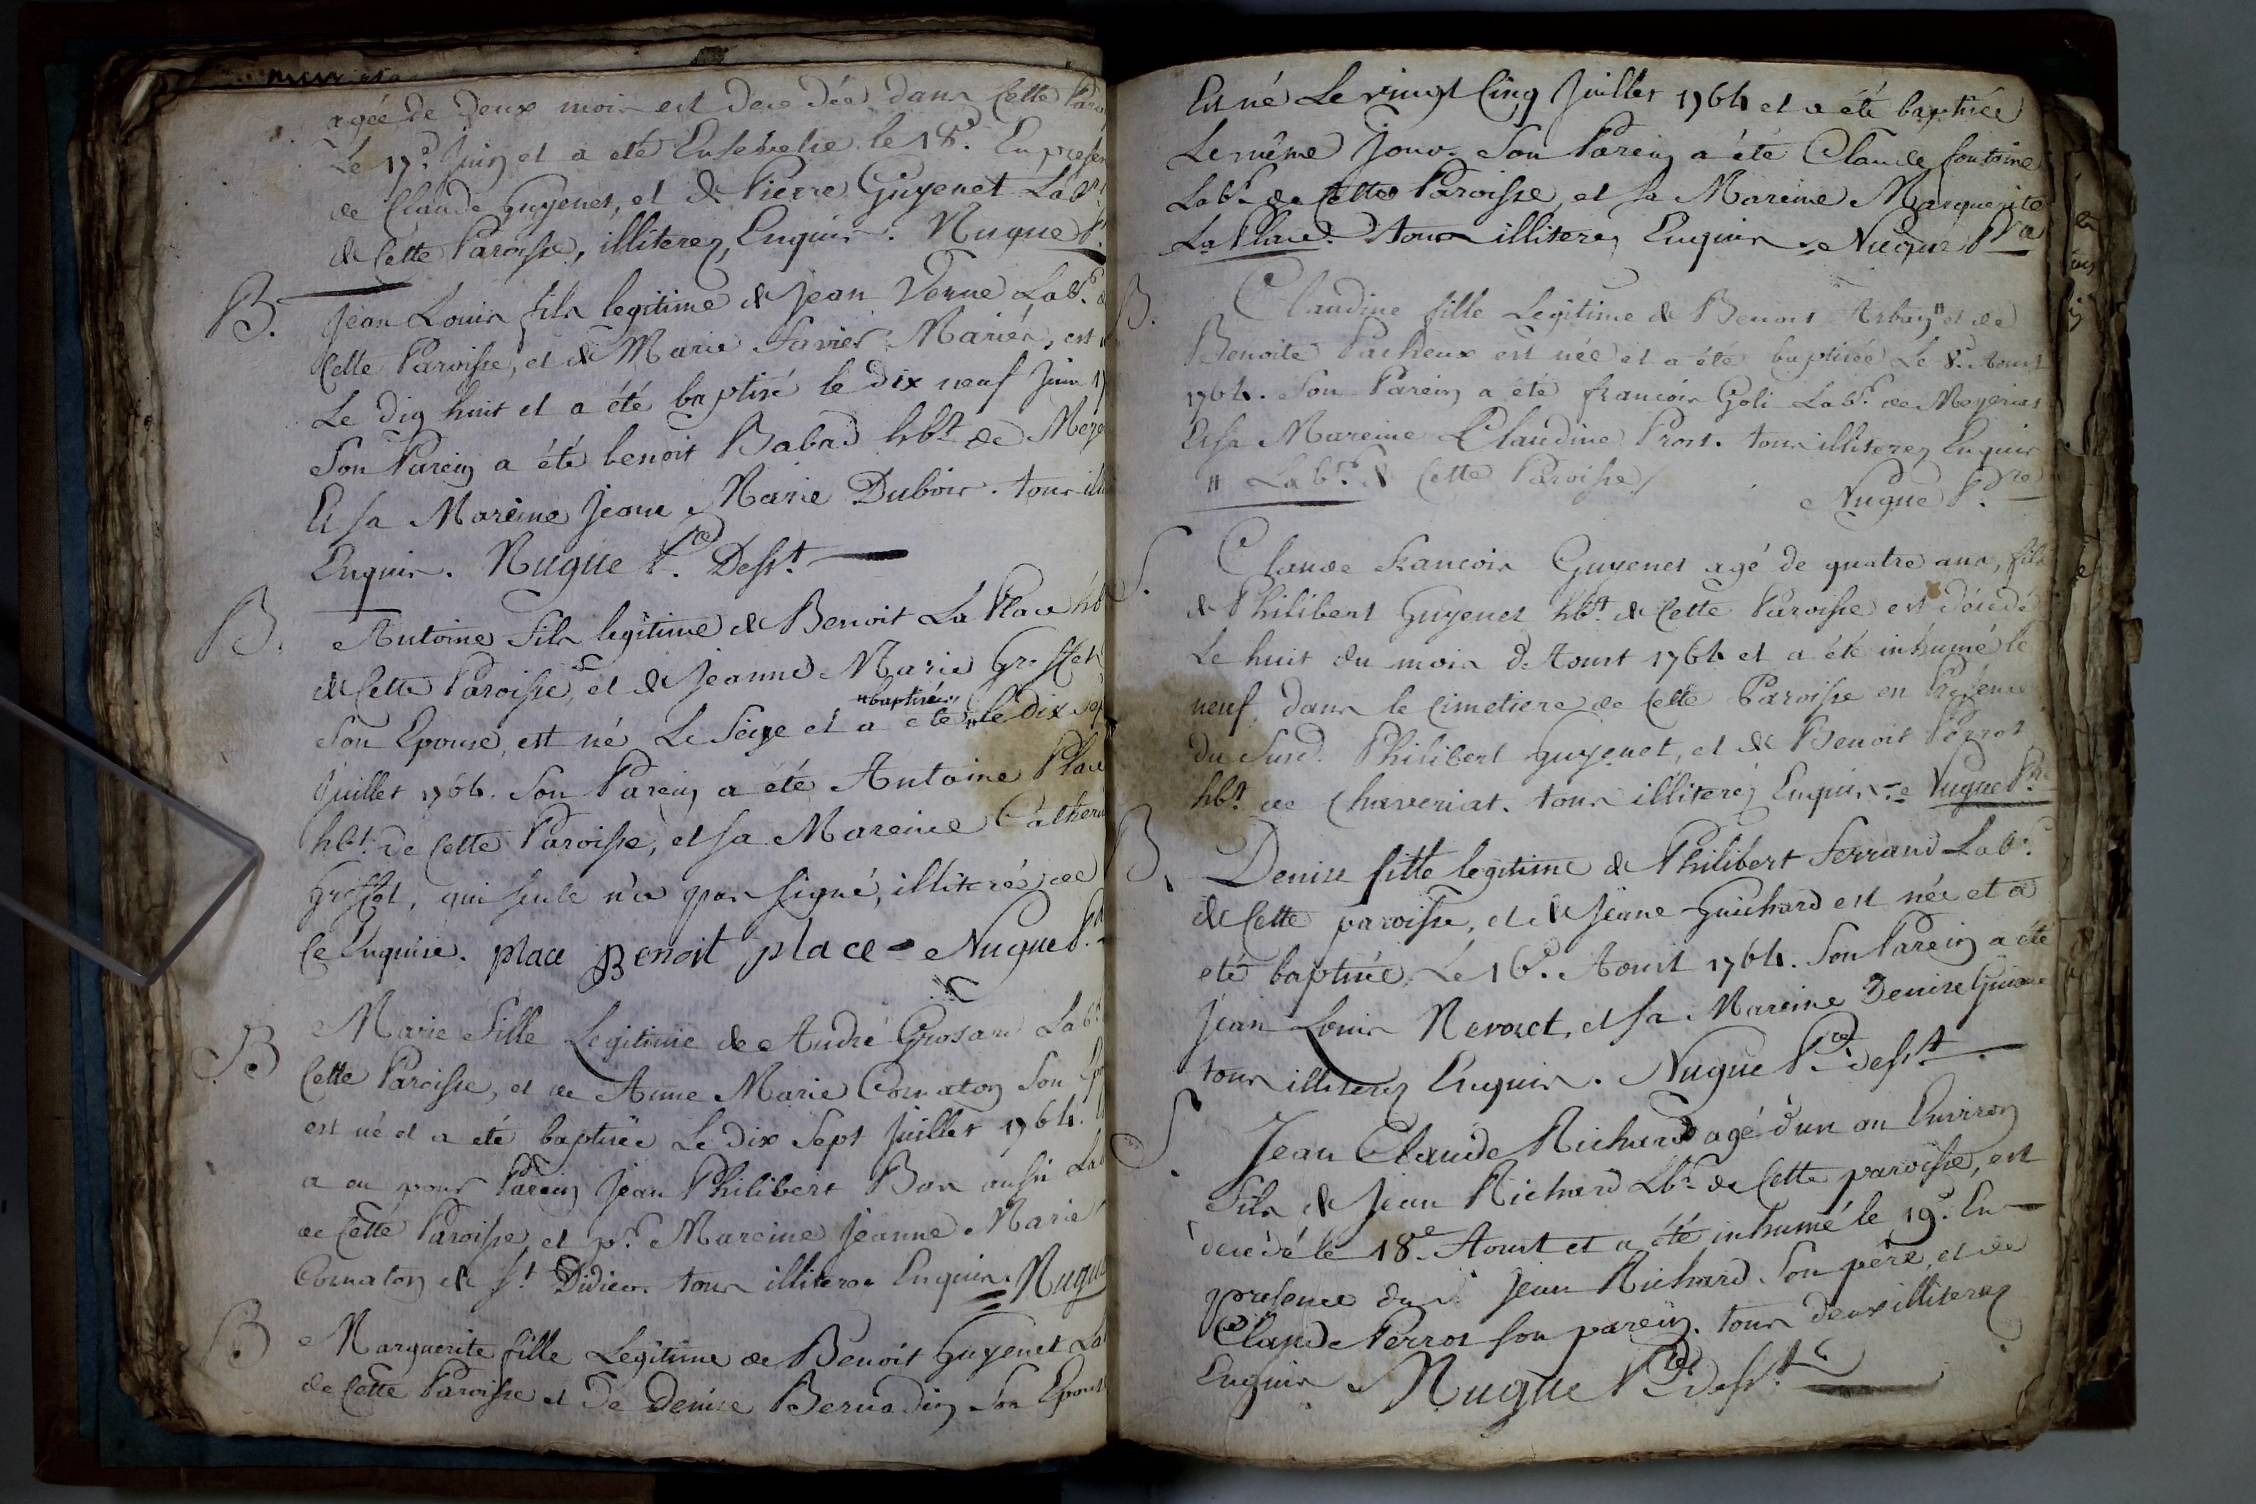 agée de Deux mois est decedée dans Cette Paro
Le 17e Juin et a eté Ensevelie le 18e. En presen
de Claude Guyenet, et de Pierre Guyenet Labr
de Cette Paroisse, illiterez Enquis. Nugue P.
B. Jean Louis fils legitime de Jean Vorne Labr. d
Cette Paroisse, et de Marie Favier Mariés, est
Le dix huit et a été baptisé le dix neuf Juin 17
Son Parein a été benoit Babad hbt de Meze
Et sa Mareine Jeane Marie Dubois. tous illi
Enquis. Nugue Pre Desst.
B. Antoine Fils legitime de Benoit La Place hb
de Cette Paroisse, et de Jeanne Marie Greffet
Son Epouse, est né Le Seize et a eté "baptisé" le Dix sep
Juillet 1764. Son Parein a été Antoine Place
hbt. de Cette Paroisse, et sa Mareine Catheri
Greffet, qui seule n'a pas signé, illiterée de
Ce Enquise. place Benoit place - Nugue P.
B Marie Fille Legitime de André Grosard Labr
Cette Paroisse, et de Anne Marie Cornaton Son Ep
est né et a été baptisée Le Dix Sept Juillet 1764.
a eu pour Parein Jean Philibert Bon aussi Lab
de Cette Paroisse, et pr. Mareine Jeanne Marie
Cornaton de St Didier. tous illiterez Enquis. Nugue
B Marguerite fille Legitime de Benoit Guyenet La
de Cette Paroisse et De Denise Bernadin Son Epouse
Est né Le vingt Cinq Juillet 1764 et a été baptisée
Le même Jour. Son Parein a été Claude fontaine
Labr. de Cette Paroisse, et sa Mareine Marguerite
La Place. tous illiterez Enquis. Nugue Pre
B. Claudine fille Legitime de Benoit Arban" et de
Benoite Pacheux est née et a été baptisée Le 8e. Aoust
1764. Son Parein a été francois Goli Labr. de Mezeriat
Et sa Mareine Claudine Prost. tous illiterez Enquis
" Labr. de Cette Paroisse/
Nugue Pre
S. Claude Francois Guyenet agé de quatre ans, fils
de Philibert Guyenet hbt. de Cette Paroisse est décedé
Le huit du mois d'Aoust 1764 et a été inhumé le
neuf dans le Cimetiere de Cette Paroisse en Presence
du Susd. Philibert Guyenet, et de Benoit Perrot
hbt de Chaveriat. tous illiterez Enquis. Nugue Pre
B. Denise fille legitime de Philibert Ferrand Labr.
de Cette paroisse, et de Jeane Guichard est née et a
eté baptisée Le 16e. Aoust 1764. Son Parein a été
Jean Louis Nevoret, et sa Mareine Denise
tous illiterez Enquis. Nugue Pre desst.
S. Jean Claude Richard agé d'un an Environ
Fils de Jean Richard Lbr. de Cette paroisse, est
decedé le 18e. Aoust et a été inhumé le 19e. En
presence du Jean Richard Son père, et de
Claude Perrot son parein. tous deux illiterez
Enquis Nugue Pre desst.